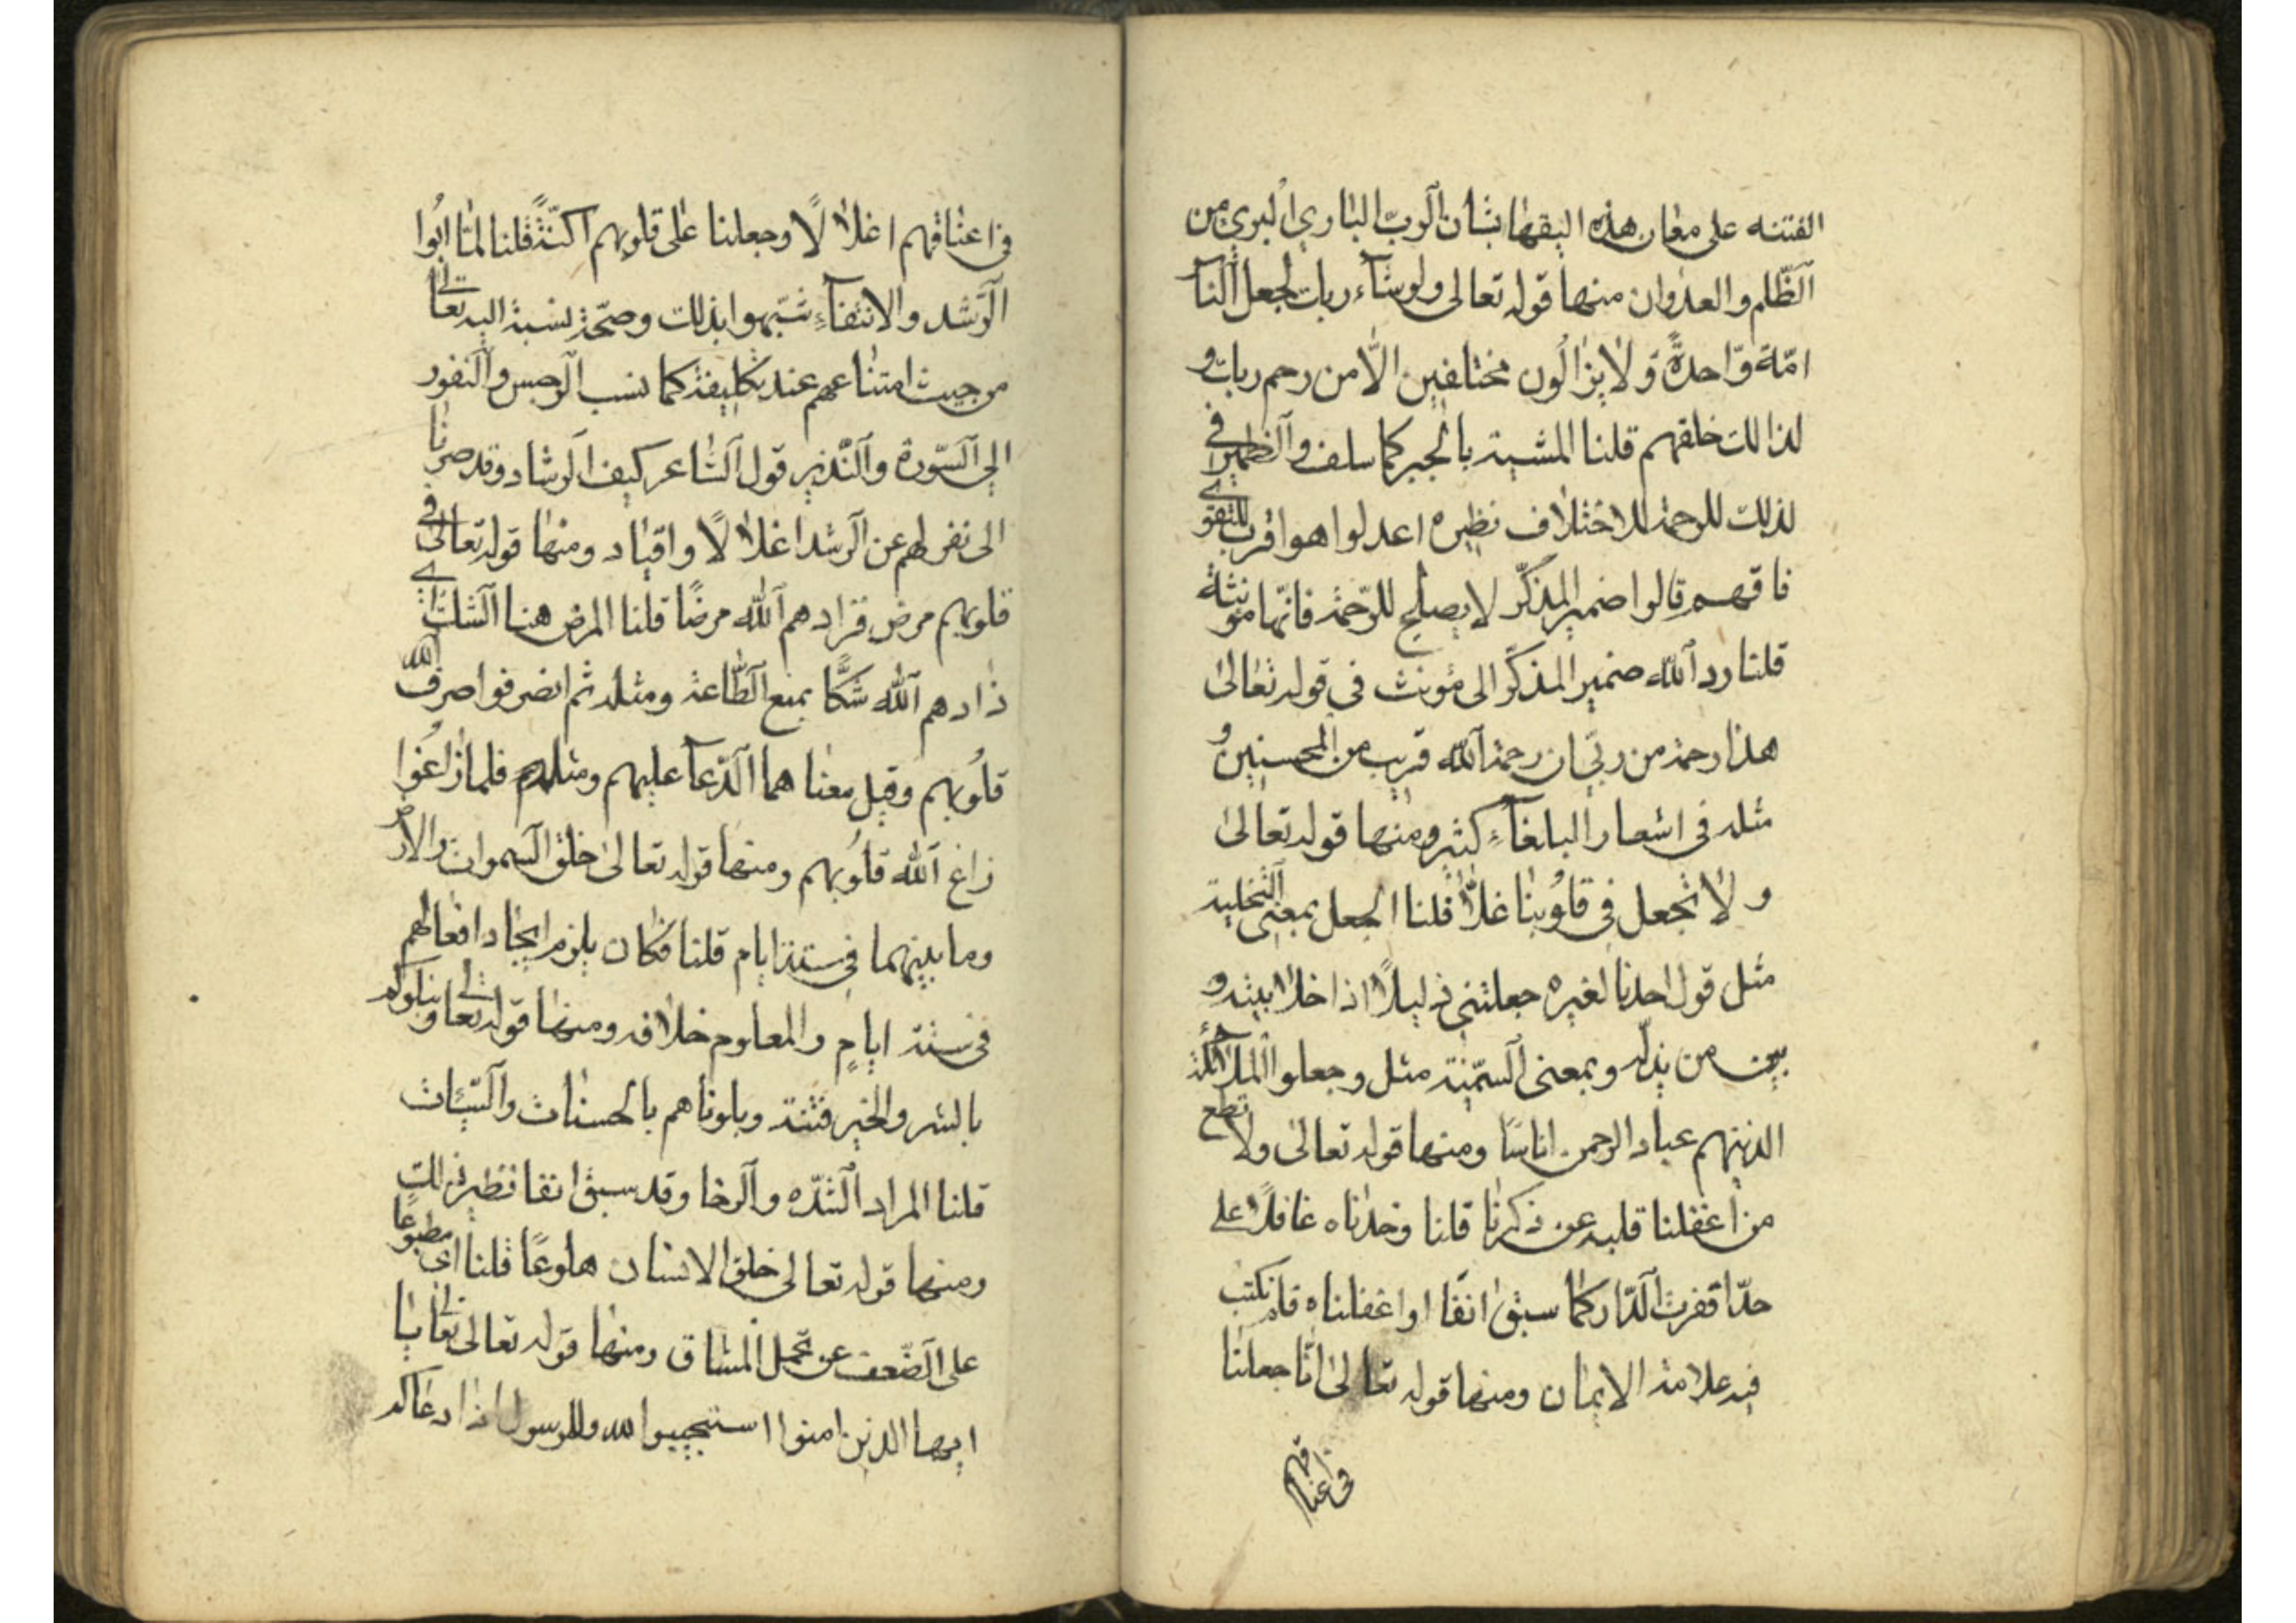 الفتنه على معان هذه اليقها بشان الربّ الباري البري من
الظّلم والعدوان منها قوله تعالى ولو شآء ربك لجعل النا
امّة وّاحدةً وّلا يزالون مختلفين الّا من رحم ربك و
لذالك خلقهم قلنا المشية بالجبر كما سلف والضمير في
لذلك للرحمة للاختلاف نظيره اعدلوا هوا قرب للتقوى
فاقهم قالوا ضمير المذكّر لا يصلح للرّحمة فانّها مونثة
قلنا رد الله ضمير المذكّر الى مؤنث في قوله تعالى
هذا رحمة من ربّي ان رحمة الله قريب من المحسنين و
مثله في اشعار البلغآء كثير ومنها قوله تعالى
ولا تجعل في قلوبنا غلّا قلنا الجعل بمعنى التخلية
مثل قول احدنا لغيره جعلتني ذليلًا اذا خلا بينه و
بين من يذلّه وبمعنى السمّية مثل وجعلوا الملآئكة
الذينهم عباد الرحمن اناسًا ومنها قوله تعالى ولا تطع
من اغفلنا قلبه عن ذكرنا قلنا وخدناه غافلًا على
حدّا قفرت الدّار كما سبق انفًا او اغفلناه فلم نكتب
فيه علامة الايمان ومنها قوله تعالى انّا جعلنا
في اعناقهم
في اعناقهم اغلالًا وجعلنا على قلوبهم اكنّةً قلنا لمّا ابوا
الرّشد والانتفآء شبّهوا بذلك وصحّة نسبة اليه تعالى
من حيث امتناعهم عند تكليفه كما نسب الرجس والنفور
الى السّورة والنّذير قول الشاعر كيف الرشاد وقد صرنا
الى نفر لهم عن الرشد اغلالًا واقياد ومنها قوله تعالى في
قلوبهم مرض فزادهم الله مرضًا قلنا المرض هنا الشك اي
زادهم الله شكًّا بمنع الطّاعة ومثله ثم انصرفوا صرف الله
قلوبهم وقيل معناهما الدّعآ عليهم ومثلهم فلما زاغوا
زاغ الله قلوبهم ومنها قوله تعالى خلق السموات والارض
وما بينهما في ستة ايام قلنا فكان يلزم ايجاد افعالهم
في ستة ايامٍ والمعلوم خلافه ومنها قوله تعالى ونبلوكم
بالشر والخير فتنة وبلوناهم بالحسنات والسّيّئات
قلنا المراد الشّدّه والرخا وقد سبق انفا نظير ذلك
ومنها قوله تعالى خلق الانسان هلوعًا قلنا اي مطبوعًا
على الضّعف عن تحمل المشاق ومنها قوله تعالى تعالى يا
ايها الذين امنوا استجيبوا لله وللرسول اذا دعاكم